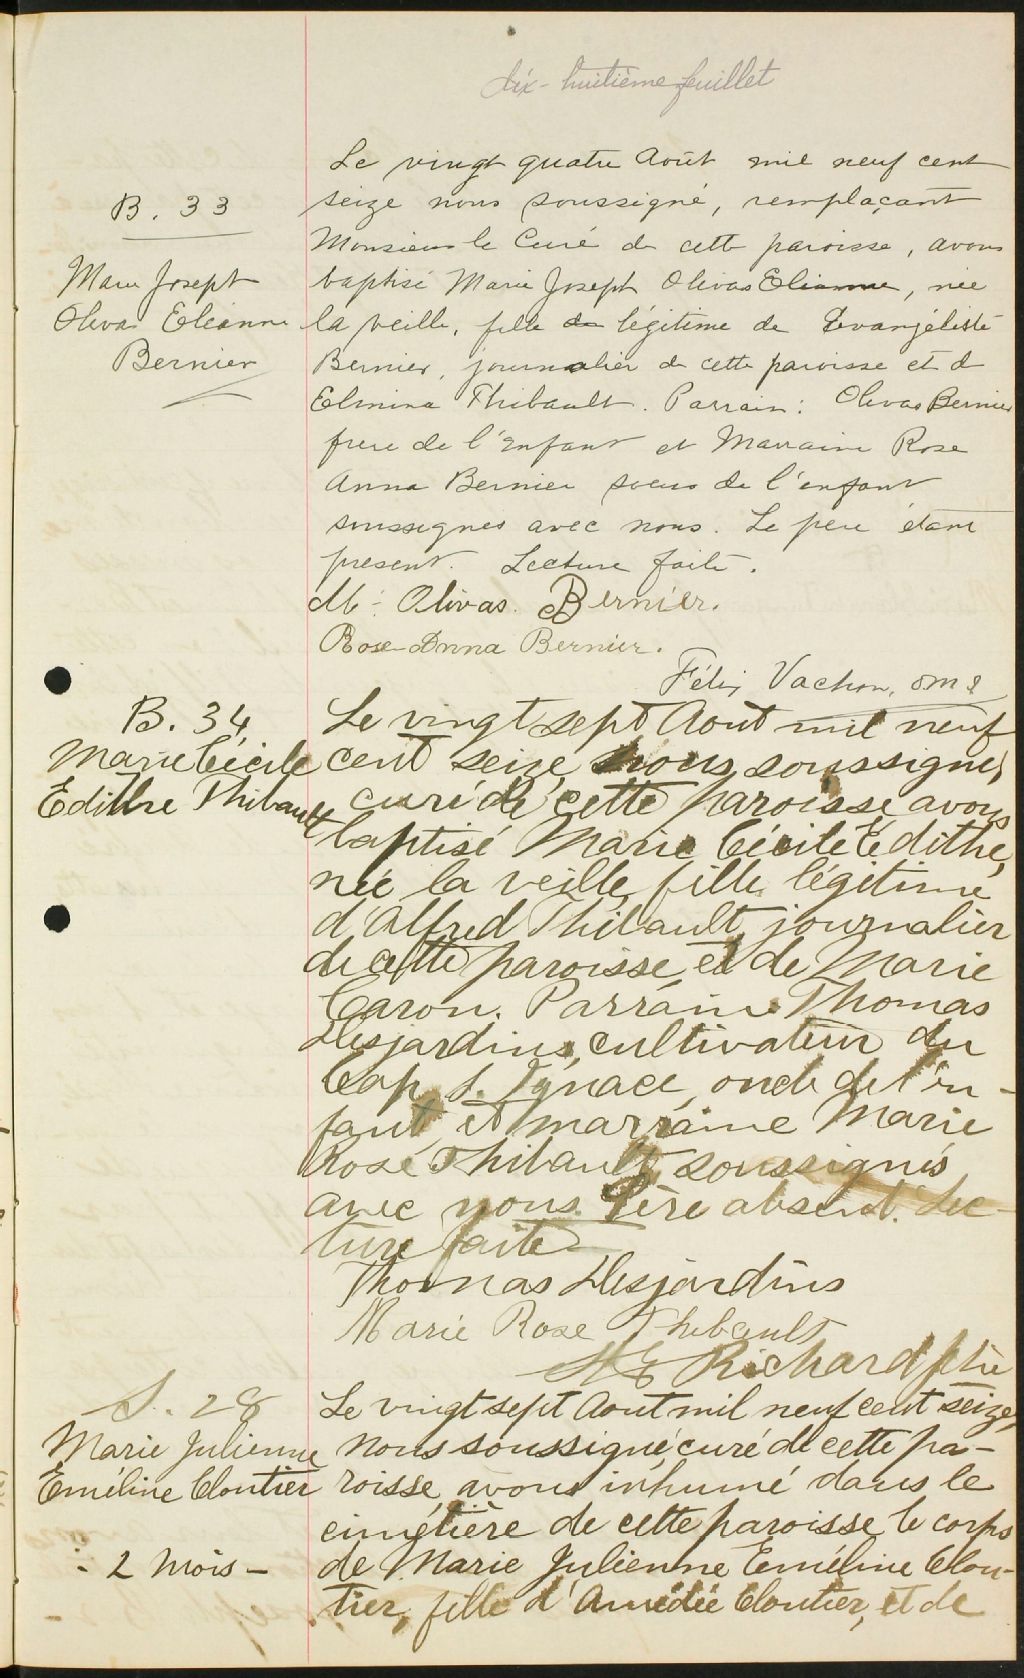 dix-huitième feuillet
B. 33
Marie Joseph
Olivas Elianne
Bernier
Le vingt quatre Août mil neuf cent
seize nous soussigné, remplaçant
Monsieur le Curé de cette paroisse, avons
baptisé Marie Joseph Olivas Elianne, née
la veille, fille légitime de Evangéliste
Bernier, journalier de cette paroisse et de
Elmina Thibault. Parrain: Olivas Bernier
frere de l'enfant et Marraine Rose
Anna Bernier soeur de l'enfant
soussignés avec nous. Le pere étant
present. Lecture faite.
M. Olivas. Bernier.
Rose-Anna Bernier.
Félix Vachon, omi
B. 34
Marie Cécile
Edithe Thibault
Le vingt sept Aout mil neuf
cent seize, nous soussigné,
curé de cette paroisse avons
baptisé Marie Cécile Edithe,
née la veille, fille légitime
d'Alfred Thibault, journalier
de cette paroisse, et de Marie
Caron. Parrain Thomas
Desjardins, cultivateur du
Cap S. Ignace, oncle de l'en-
fant, et marraine Marie
Rose Thibault soussignés
avec nous. Père absent. Lec-
ture faite
Thomas Desjardins
Marie Rose Thibault
Richard ptre
S. 28
Marie Julienne
Eméline Cloutier
2 mois -
Le vingt sept Aout mil neuf cent seize,
nous soussigné, curé de cette pa-
roisse, avons inhumé dans le
cimétière de cette paroisse, le corps
de Marie Julienne Eméline Clou-
tier, fille d'Amédée Cloutier, et de